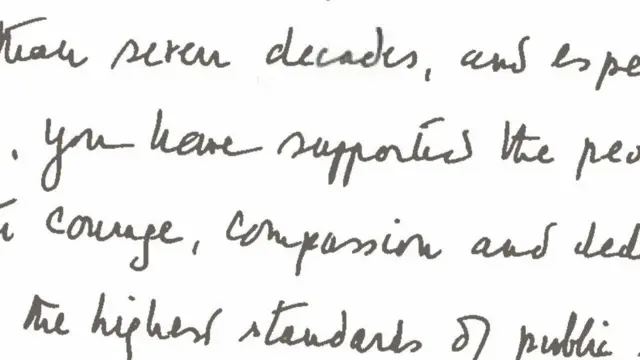 than seven decades, and espe
. you have supported the peo
courage, compassion and ded
the highest standards of public